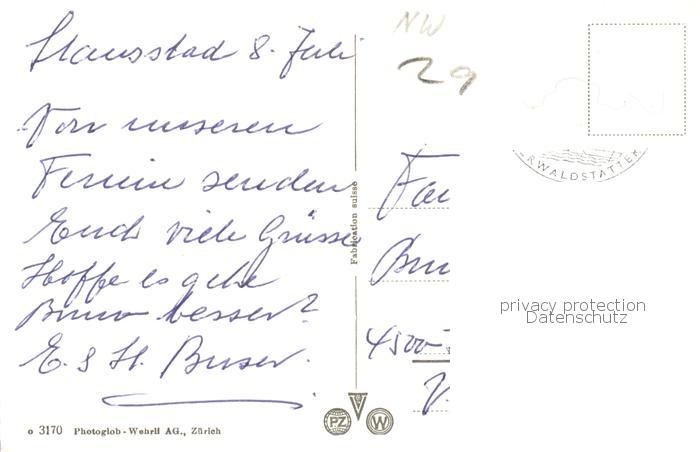 Stansstad 8. Juli
Von unseren
Ferien senden
Euch viele Grüsse
Hoffe es gehe
Bruno besser?
E. & H. Buser.
NW
29
RWALDSTÄTTER
Fabrication suisse
Fam
Bru
4500
privacy protection
Datenschutz
o 3170 Photoglob-Wehrli AG., Zürich
PZ
W